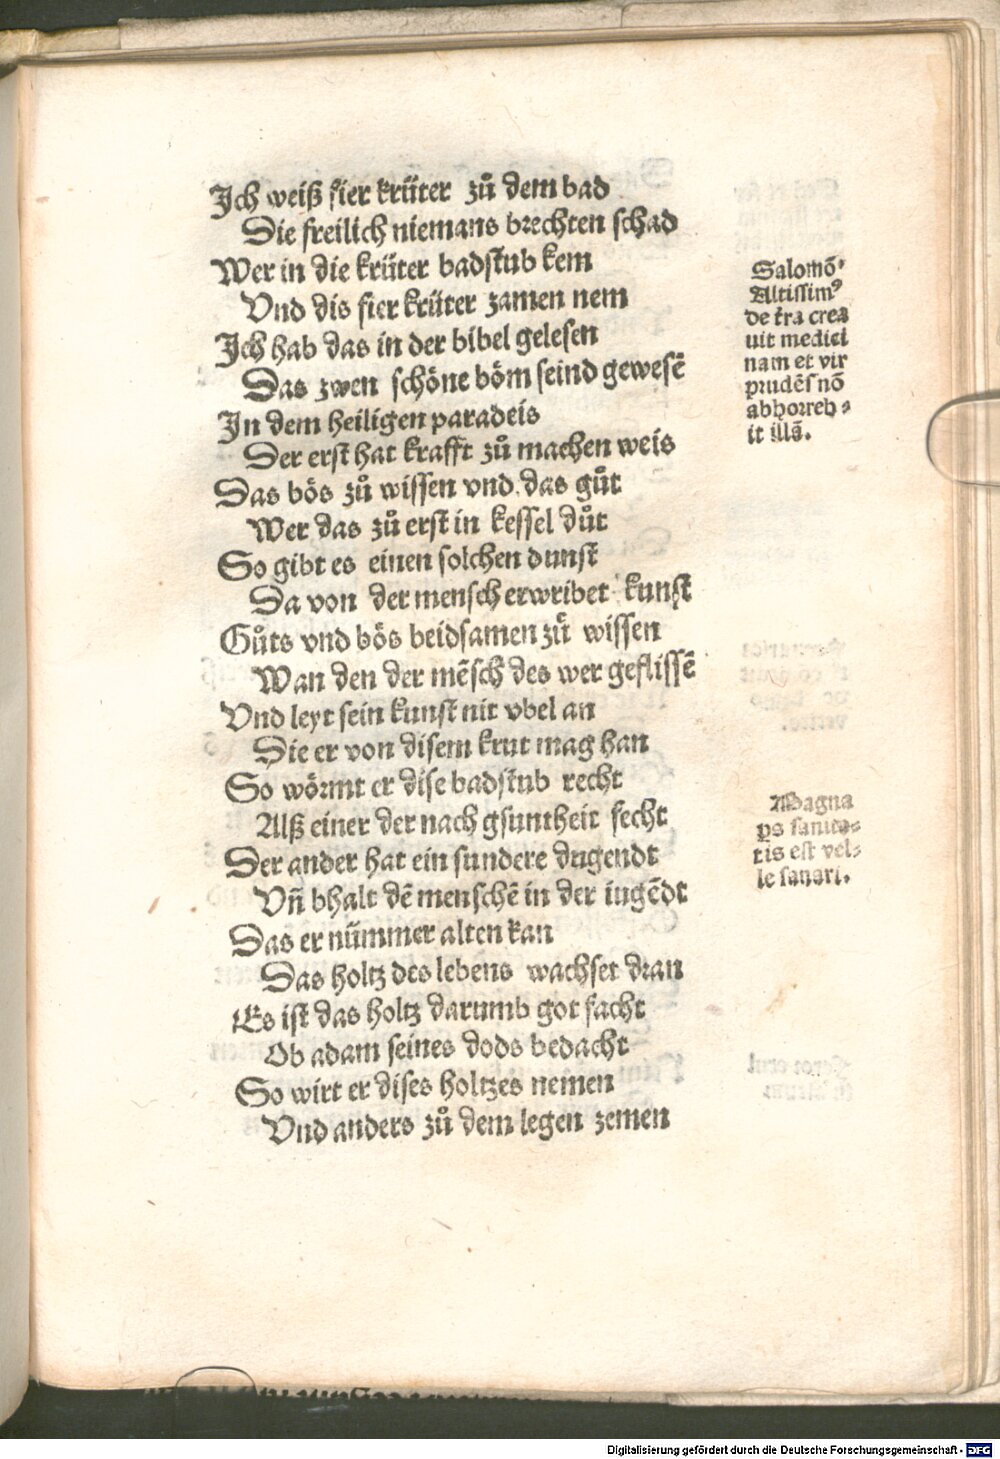 Ich weiß fier krüter zů dem bad
Die freilich niemans brechten schad
Wer in die krüter badstub kem
Vnd dis fier krüter zamen nem
Ich hab das in der bibel gelesen
Das zwen schöne böm seind gewesē
In dem heiligen paradeis
Der erst hat krafft zů machen weis
Das bös zů wissen vnd das gůt
Wer das zů erst in kessel důt
So gibt es einen solchen dunst
Da von der mensch erwribet kunst
Gůts vnd bös beidsamen zů wissen
Wan den der mēsch des wer geflissē
Vnd leyt sein kunst nit vbel an
Die er von disem krut mag han
So wörmt er dise badstub recht
Alß einer der nach gsuntheit fecht
Der ander hat ein sundere dugendt
Vñ bhalt dē menschē in der iugēdt
Das er nümmer alten kan
Das holtz des lebens wachset dran
Es ist das holtz darumb got facht
Ob adam seines dods bedacht
So wirt er dises holtzes nemen
Vnd anders zů dem legen zemen
Salomō
Altissimꝰ
de tr̄a crea
uit medici
nam et vir
prudēs nō
abhorreb⸗
it illā.
Magna
ps sanita⸗
tis est vel⸗
le sanari.
Digitalisierung gefördert durch die Deutsche Forschungsgemeinschaft - DFG